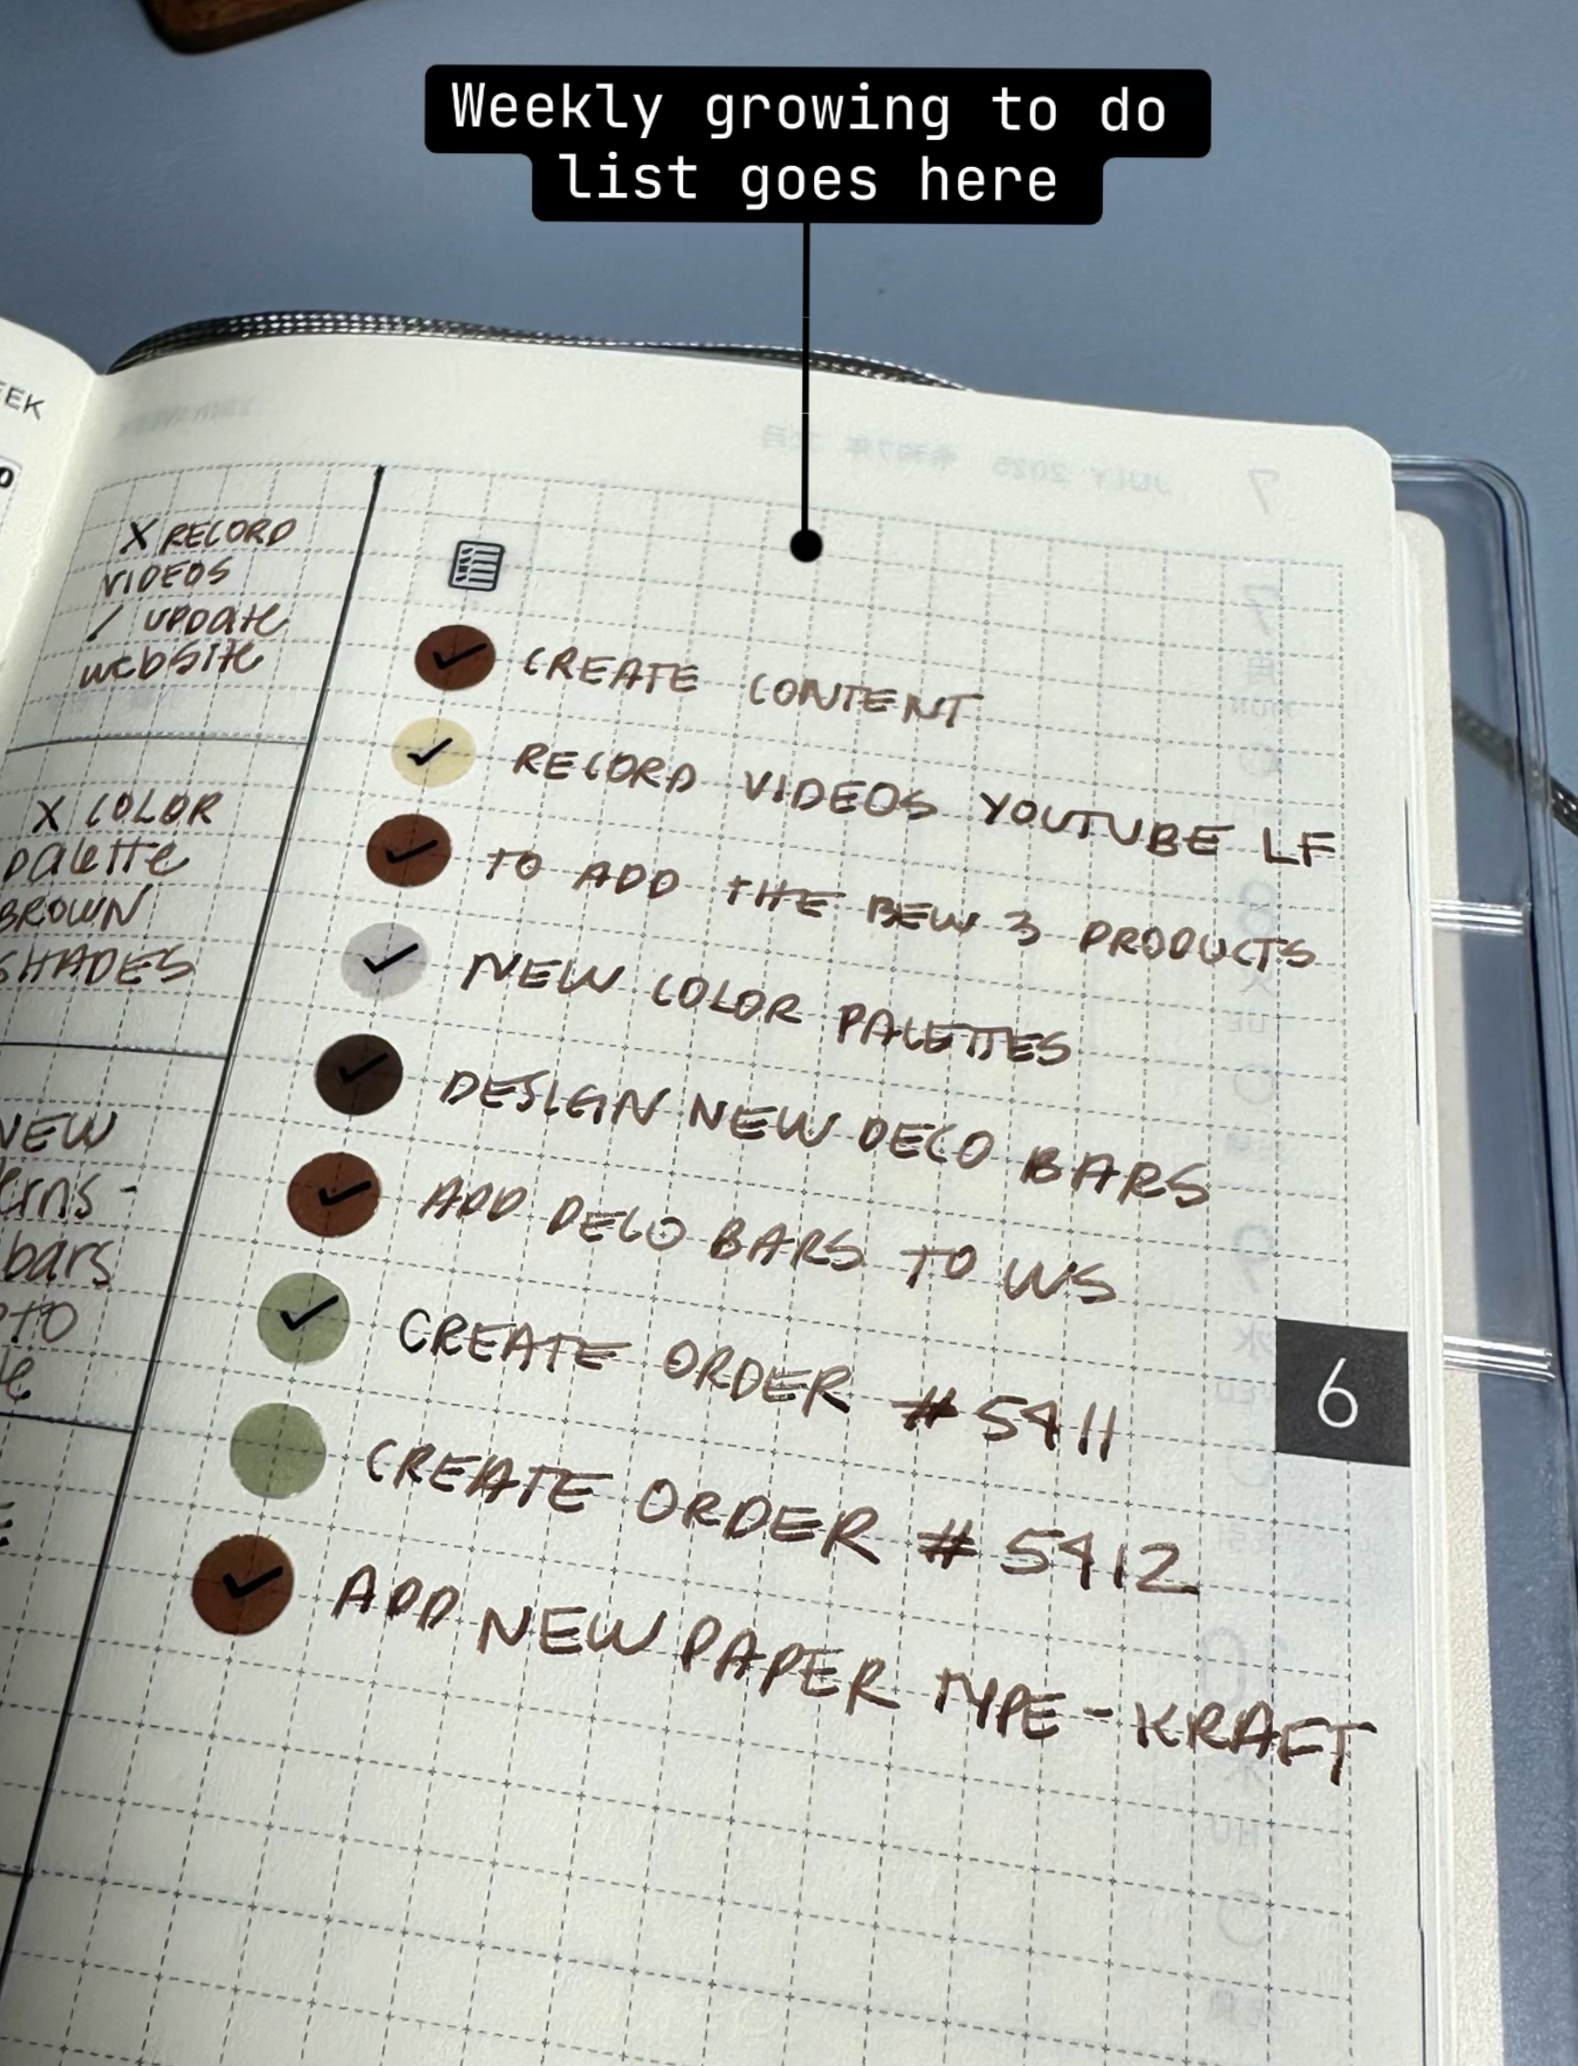 Weekly growing to do
list goes here
EEK
X RECORD
VIDEOS
/ UPDATE
website
X COLOR
palette
BROWN
SHADES
NEW
erns -
bars
CREATE CONTENT
RECORD VIDEOS YOUTUBE LF
TO ADD THE BEW 3 PRODUCTS
NEW COLOR PALETTES
DESIGN NEW DECO BARS
ADD DECO BARS TO WS
CREATE ORDER #5411
CREATE ORDER #5412
ADD NEW PAPER TYPE - KRAFT
6
JULY 2025 令和7年 7月
7